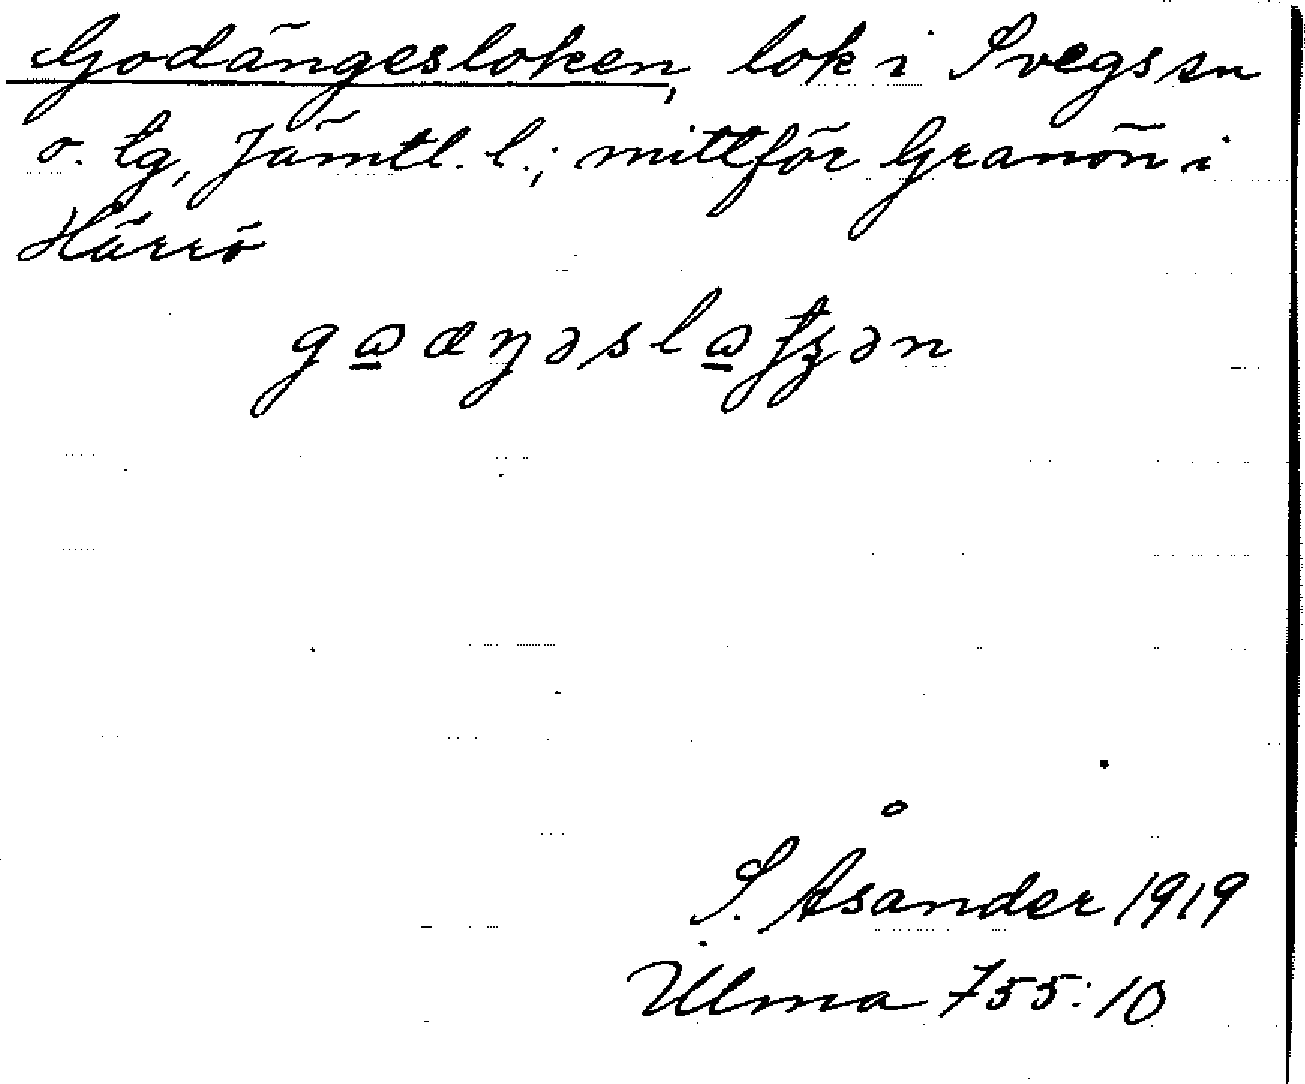 Godängesloken, lok i Svegs sn
o. tg, Jämtl. l.; mittför Granön i
Härrö
S. Åsander 1919
Ulma 755:10